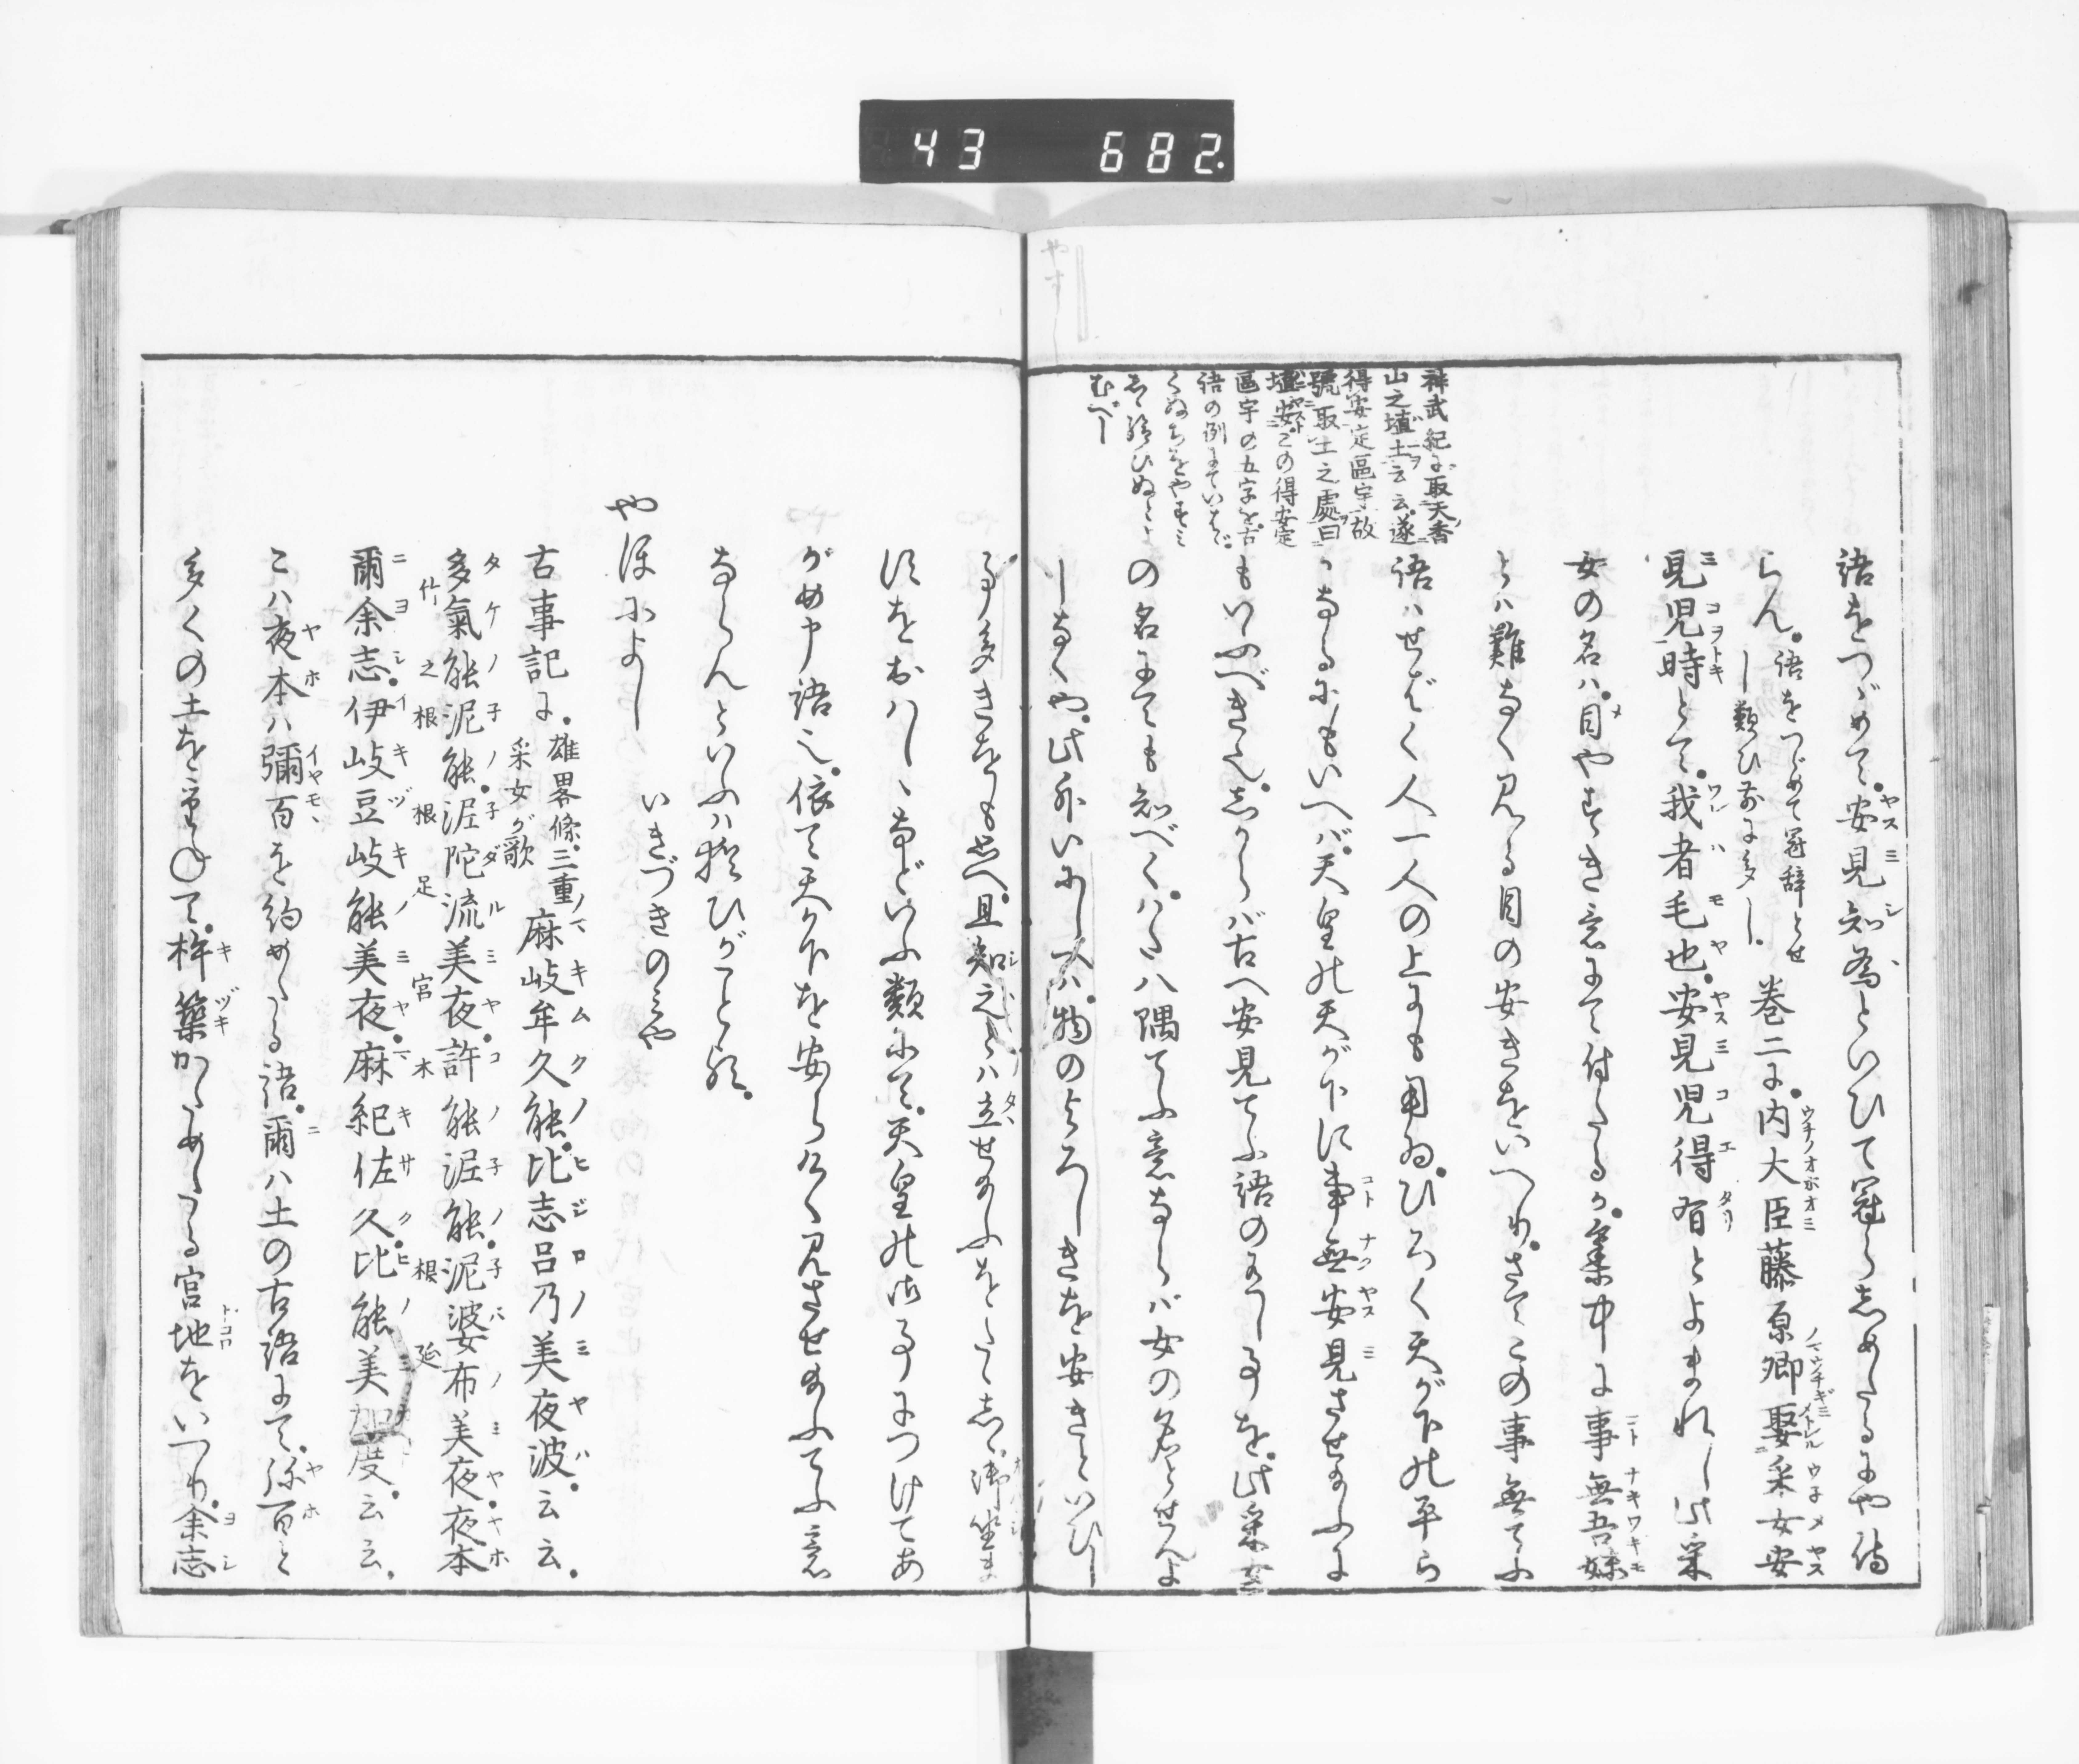 43 682
語をつゞめて。安見知為といひて冠らしめたるにや侍
らん。語をつゞめて冠辞とせ
し類ひ前に多し。巻二に。内大臣藤原卿娶采女安
見児時とて。我者毛也。安見児得有とよまれし此采
女の名は。目やすき意にて付たるか。集中に事無吾妹
とは難なく見る目の安きをいへり。さてこの事無てふ
語はせばく人一人の上にも用ゐ。ひろく天が下の平ら
かなるにもいへば。天皇の天が下に事無安見させ給ふに
もいふべき也。しからば古へ安見てふ語の有し事を。此采女
の名にても知べく。はた八隅てふ意ならば女の名とせんよ
しなくや。此外いにしへは。物のよろしきを安きといひし
神武紀に取天香
山之埴土云云遂
得安定區宇故
號取土之處曰
埴安この得安定
區宇の五字を。古
語の例にていはゞ。
くぬちをやすみ
しゝ給ひぬとよ
むべし
事多きをも思へ。且知之とは立せ給ふをたゝし。御坐ま
すをおはしゝなどいふ類にて。天皇の御事につけてあ
がめ申語也。依て天が下を安らけく見させ給ふてふ意
ならんといふは強ひがこと歟。
やほによし　いきづきのみや
古事記に。雄畧條。三重
采女が歌麻岐牟久能。比志呂乃美夜波。云云。
多氣能泥能。泥陀流美夜。許能泥能。泥婆布美夜。夜本
竹之根　根足　宮　木　根　延
爾余志。伊岐豆岐能美夜。麻紀佐久。比能美加度。云云。
こは夜本は彌百を約めたる語。爾は土の古語にて。弥百と
多くの土を重ねて。杵築かためたる宮地をいへり。余志